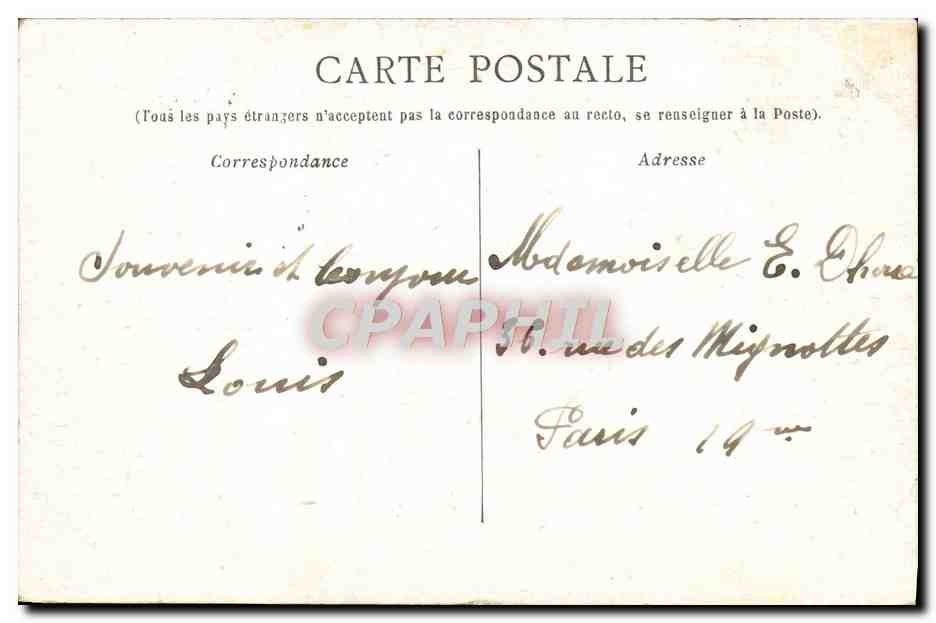 CARTE POSTALE
(Tous les pays étrangers n'acceptent pas la correspondance au recto, se renseigner à la Poste).
Correspondance
Adresse
Souvenir et bonjour
Louis
Mademoiselle E.
36. rue des Mignottes
Paris 19me
CPAPHIL